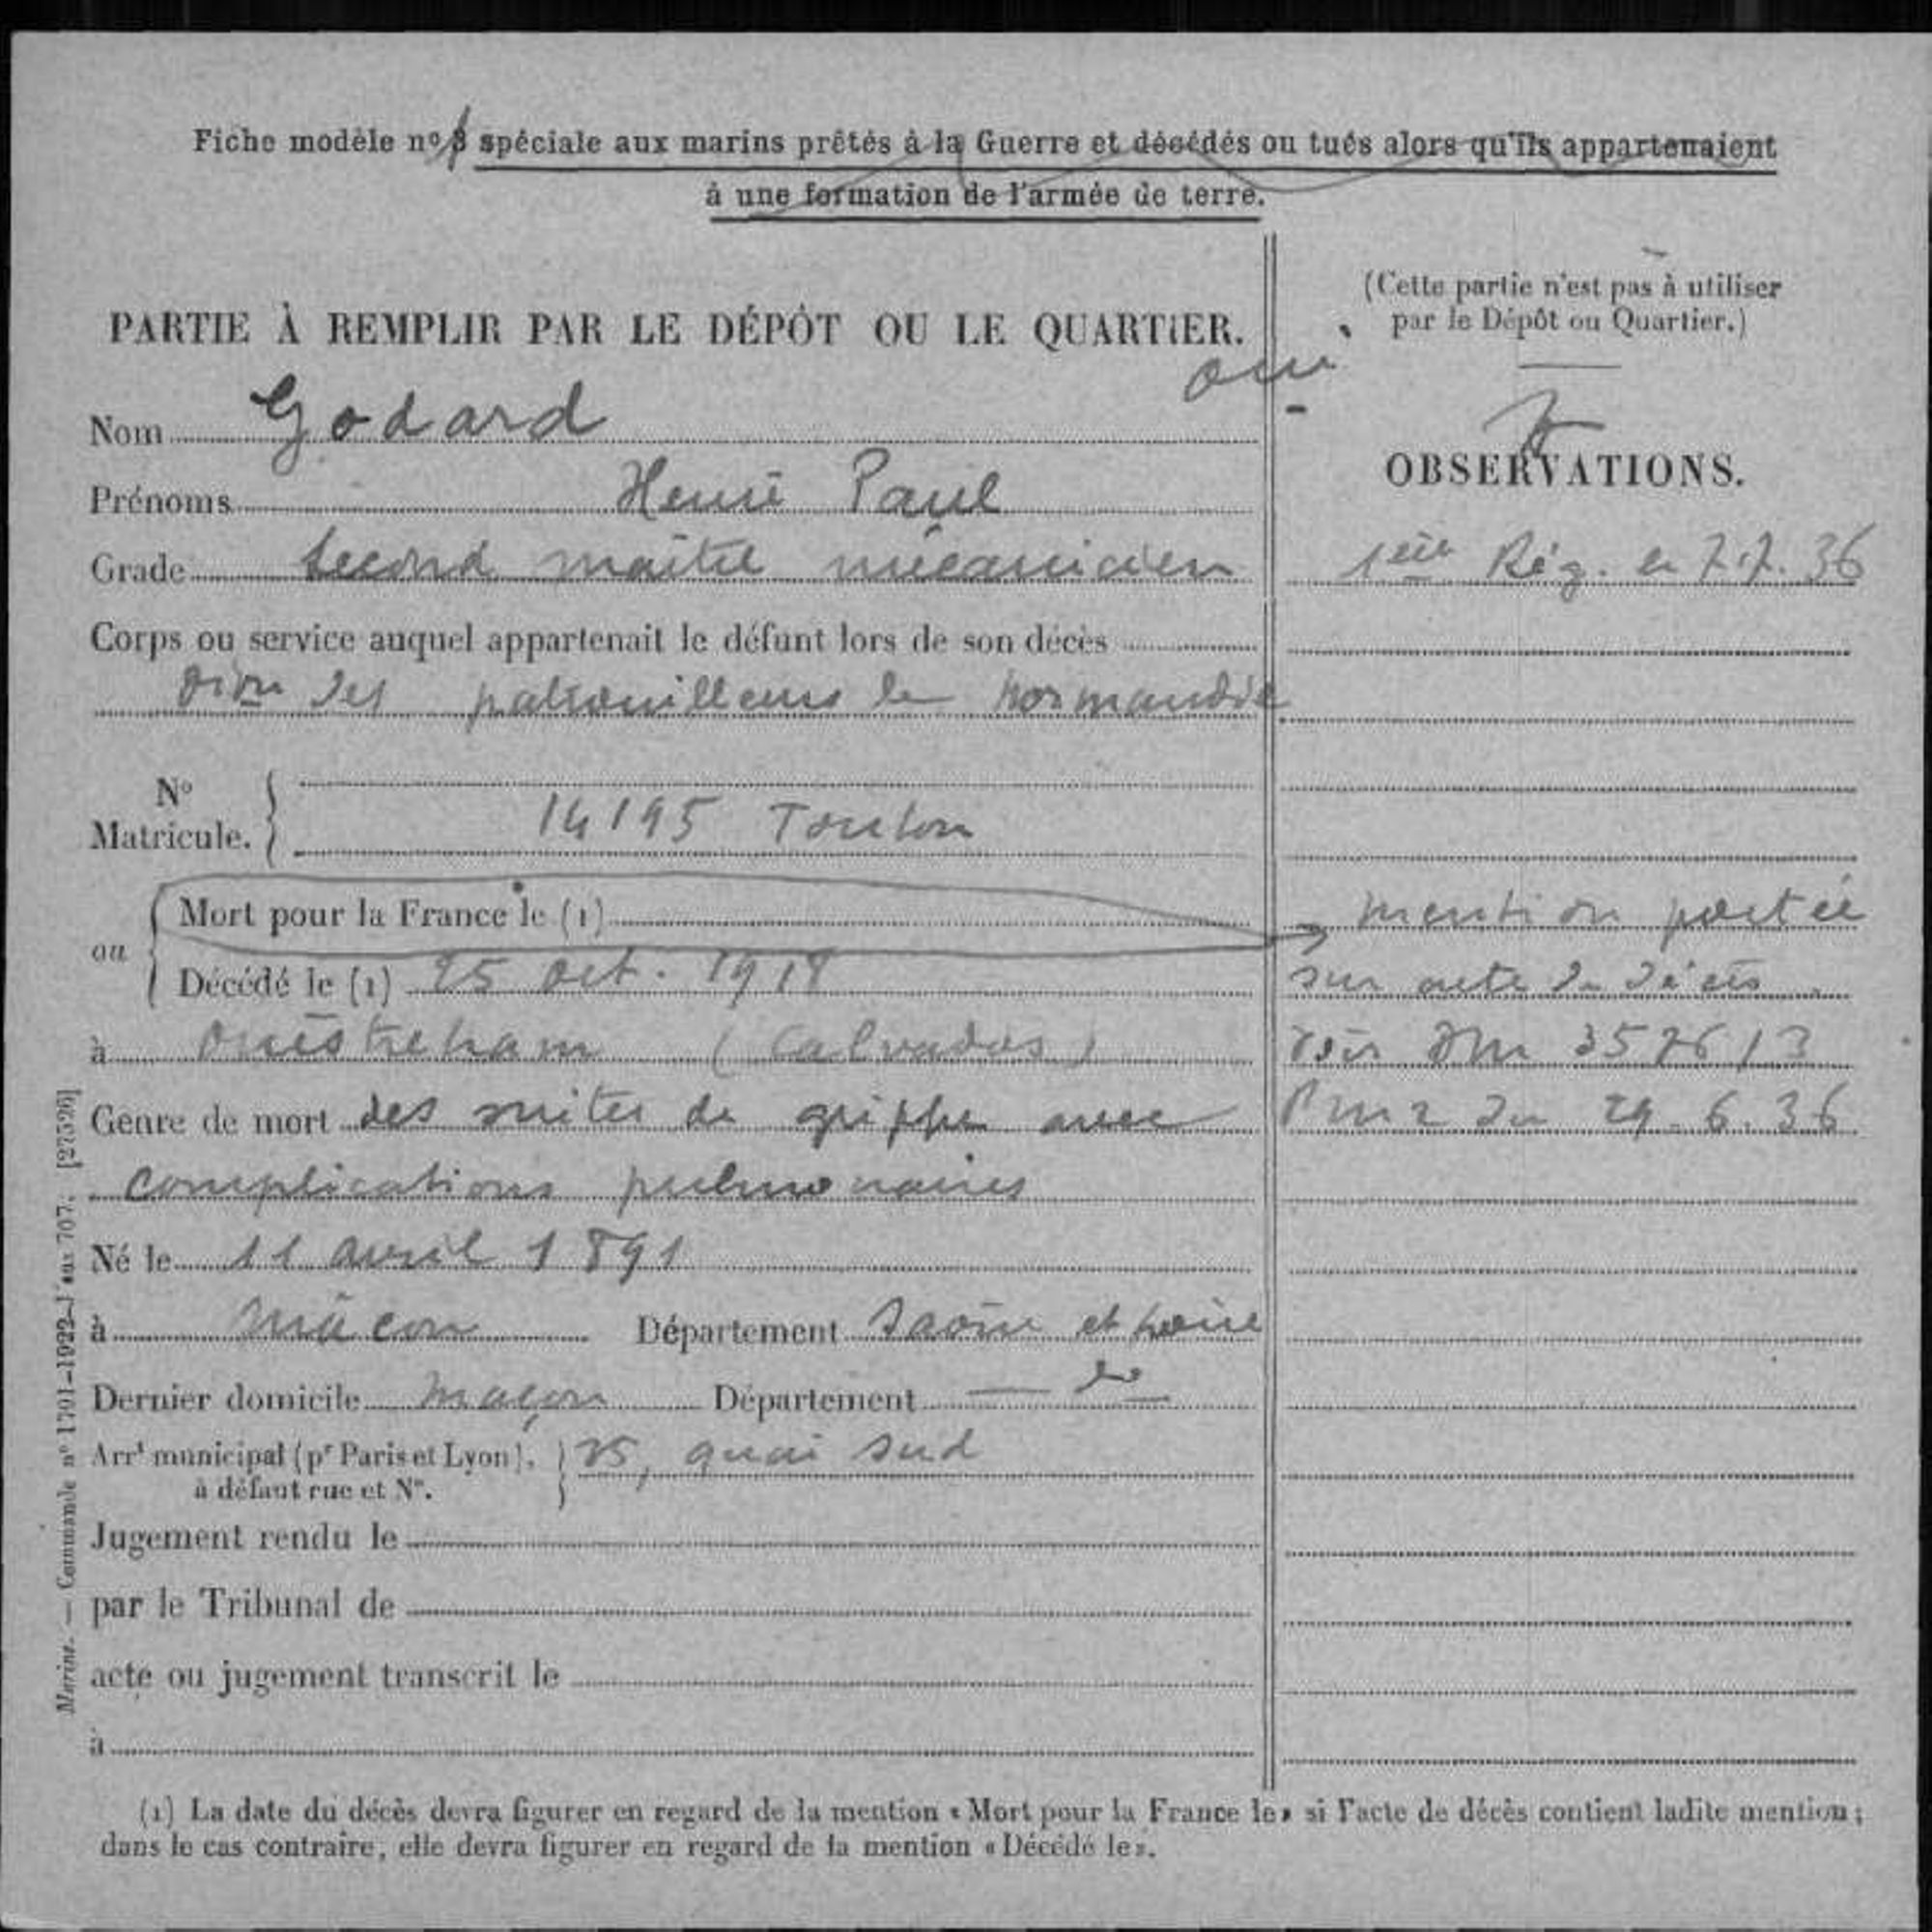 Fiche modèle n° spéciale aux marins prêtés à la Guerre et décédés ou tués alors qu'ils appartenaient
à une formation de l'armée de terre.
(Cette partie n'est pas à utiliser
par le Dépôt ou Quartier.)
PARTIE À REMPLIR PAR LE DÉPÔT OU LE QUARTIER.
oui
Nom Godard
OBSERVATIONS.
Prénoms Henri Paul
Grade Second maître mécanicien
1ère Rég. le 7.7.36
Corps ou service auquel appartenait le défunt lors de son décès
Dion des patrouilleurs de Normandie
N°
Matricule. 14195 Toulon
Mort pour la France le (1)
mention portée
ou
Décédé le (1) 25 oct. 1918
sur acte de décès
à Ouistreham (Calvados)
Voir DM 3576/3
Genre de mort des suites de grippe avec
PM2 du 29.6.36
complications pulmonaires
Né le 11 avril 1891
à Mâcon Département Saône et Loire
Dernier domicile Maçon Département do
Arrt municipal (pr Paris et Lyon), 25, quai sud
à défaut rue et N°.
Jugement rendu le
par le Tribunal de
acte ou jugement transcrit le
à
(1) La date du décès devra figurer en regard de la mention « Mort pour la France le » si l'acte de décès contient ladite mention;
dans le cas contraire, elle devra figurer en regard de la mention « Décédé le ».
Marine. — Commande n° 1701-1922-J aux 707. [27526]